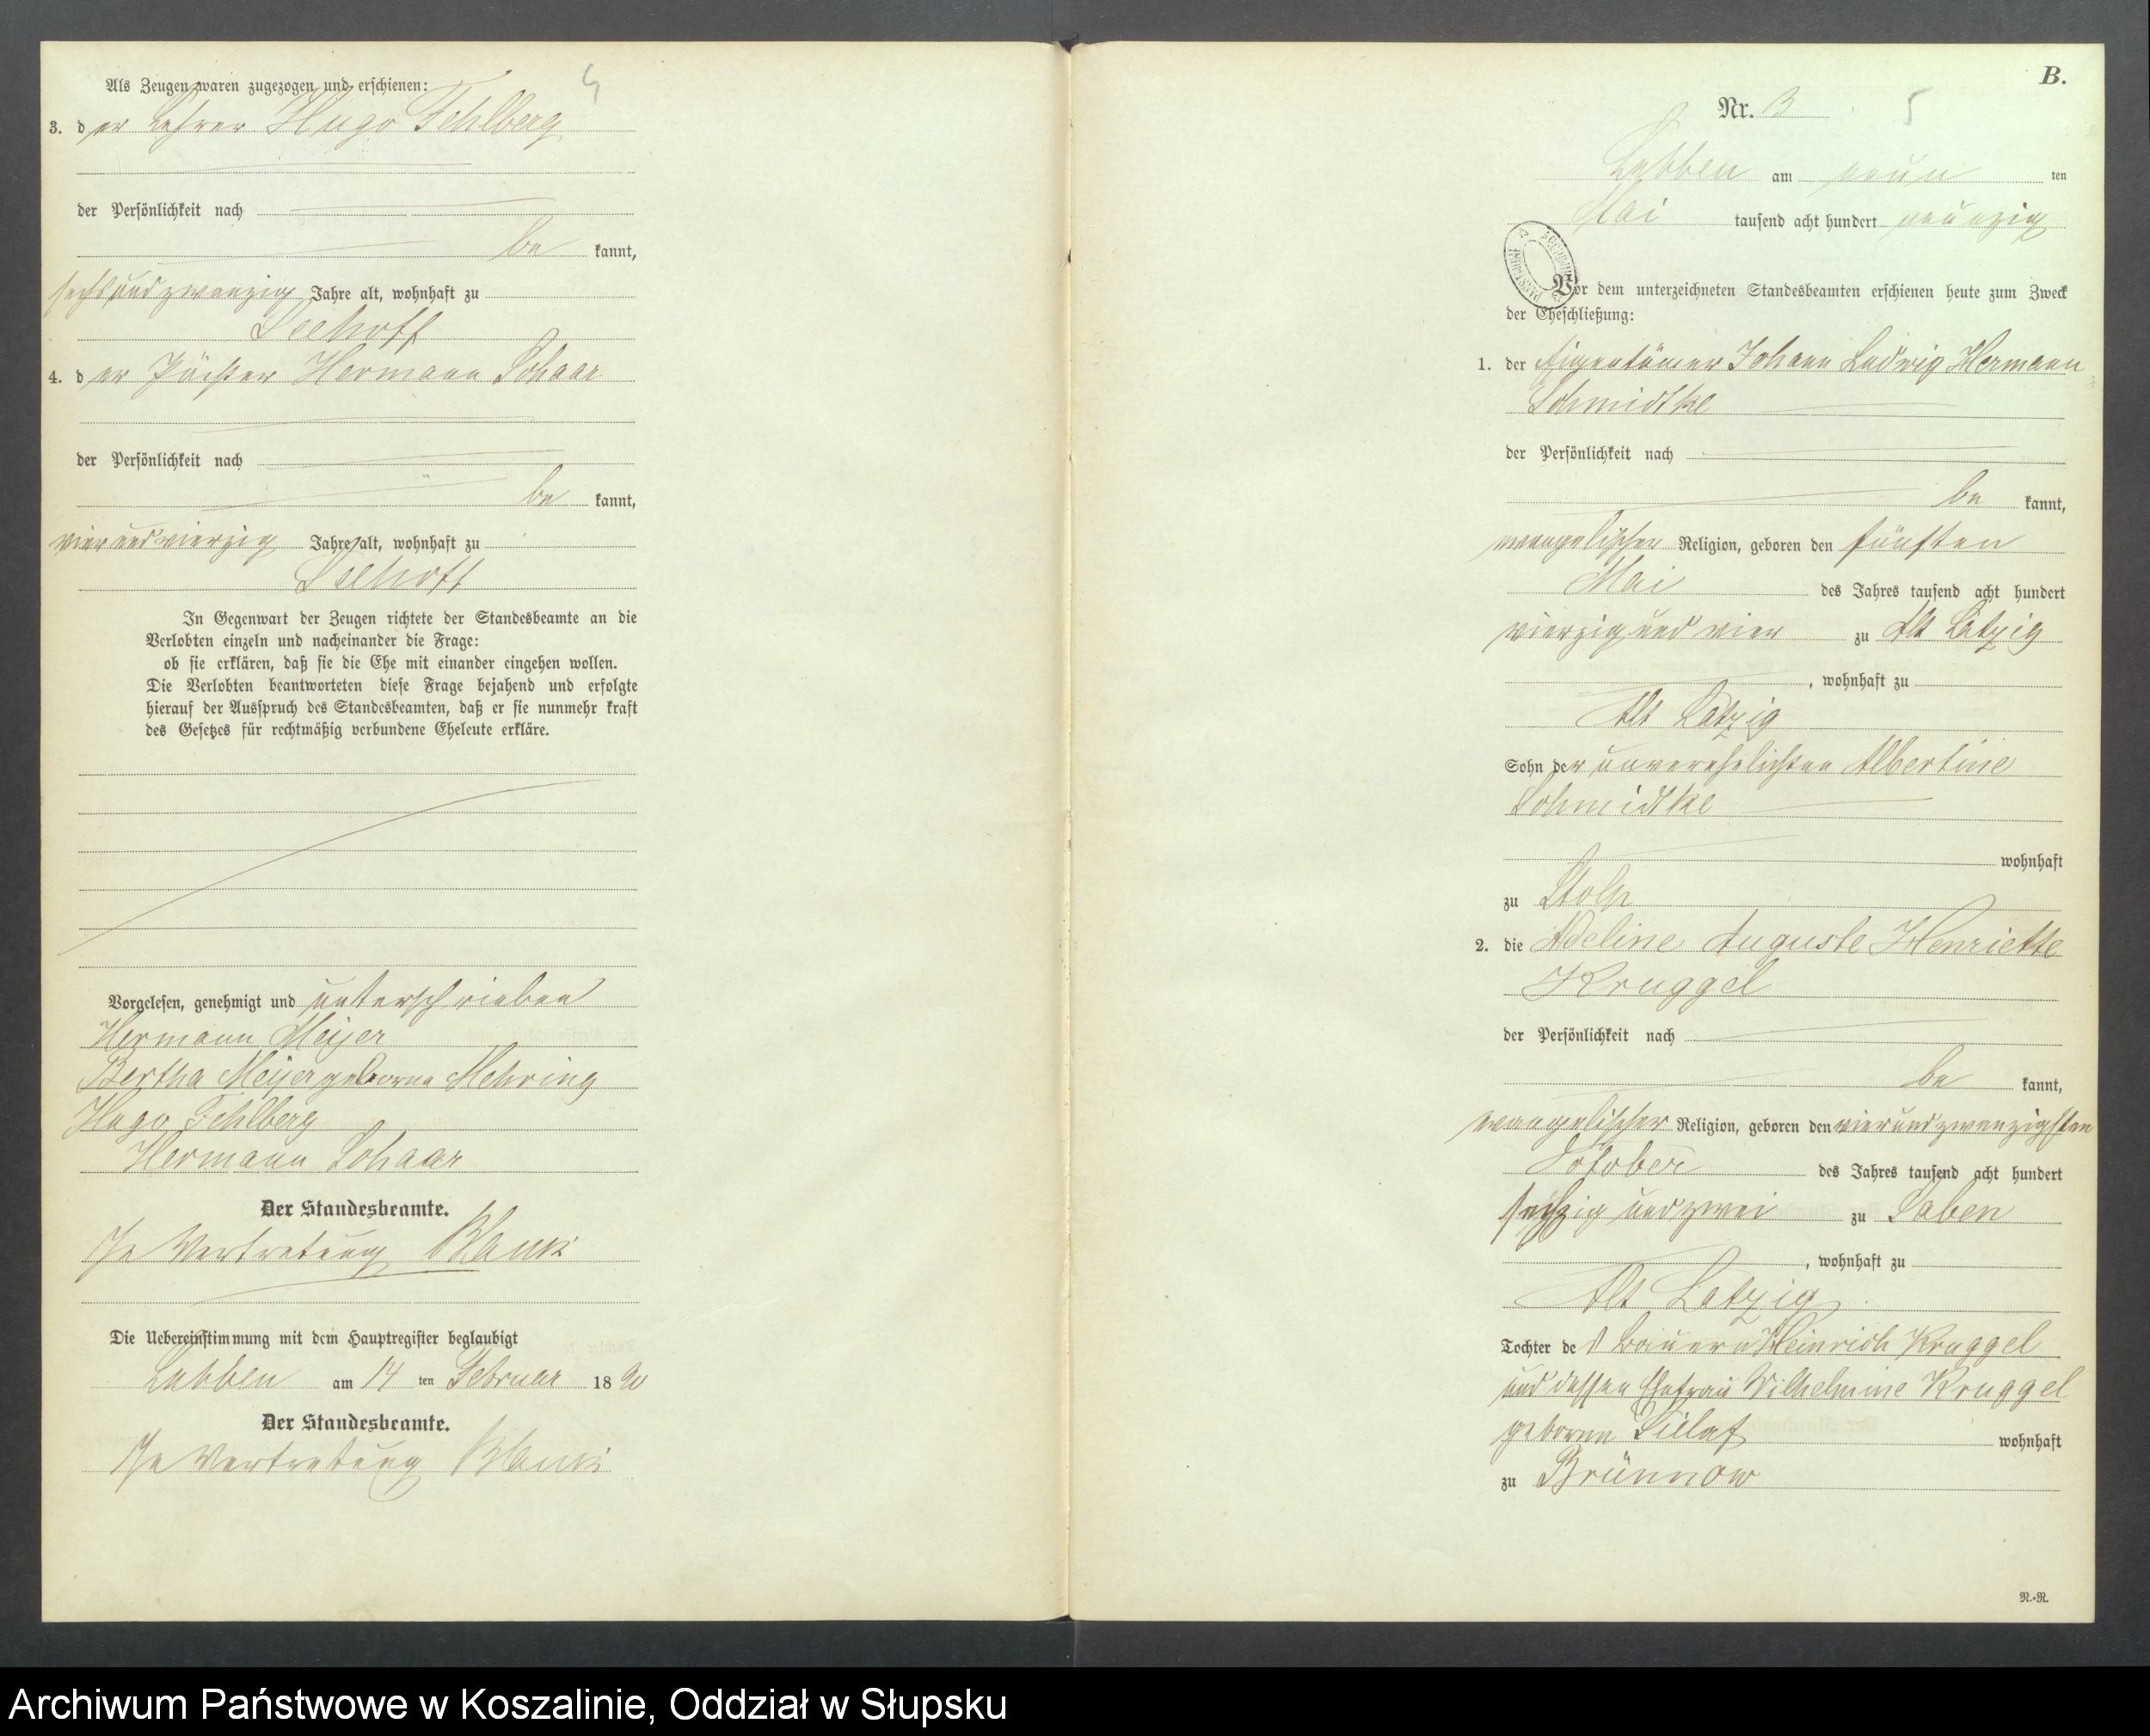 4
Als Zeugen waren zugezogen und erschienen:
3. der Lehrer Hugo Fehlberg
der Persönlichkeit nach
be kannt,
sechsundzwanzig Jahre alt, wohnhaft zu
Seehoff
4. der Pächter Hermann Schaar
der Persönlichkeit nach
be kannt,
vierundvierzig Jahre alt, wohnhaft zu
Seehoff
In Gegenwart der Zeugen richtete der Standesbeamte an die
Verlobten einzeln und nacheinander die Frage:
ob sie erklären, daß sie die Ehe mit einander eingehen wollen.
Die Verlobten beantworteten diese Frage bejahend und erfolgte
hierauf der Ausspruch des Standesbeamten, daß er sie nunmehr kraft
des Gesetzes für rechtmäßig verbundene Eheleute erkläre.
Vorgelesen, genehmigt und unterschrieben
Hermann Meyer
Bertha Meyer geborne Mehring
Hugo Fehlberg
Hermann Schaar
Der Standesbeamte.
In Vertretung
Die Uebereinstimmung mit dem Hauptregister beglaubigt
Labben am 14 ten Februar 18 90
Der Standesbeamte.
In Vertretung
B.
Nr. 3
5
Labben am neun ten
Mai tausend acht hundert neunzig
Vor dem unterzeichneten Standesbeamten erschienen heute zum Zweck
der Eheschließung:
1. der Eigentümer Johann Ludwig Hermann
Schmidtke
der Persönlichkeit nach
be kannt,
evangelischer Religion, geboren den fünften
Mai des Jahres tausend acht hundert
vierzig und vier zu Alt Latzig
, wohnhaft zu
Alt Latzig
Sohn der unverehelichten Albertine
Schmidtke
wohnhaft
zu Stolp
2. die Adeline Auguste Henriette
Kruggel
der Persönlichkeit nach
be kannt,
evangelischer Religion, geboren den vierundzwanzigsten
October des Jahres tausend acht hundert
sechzig und zwei zu Saben
, wohnhaft zu
Alt Latzig
Tochter des Bauern Heinrich Kruggel
und dessen Ehefrau Wilhelmine Kruggel
geborne wohnhaft
zu Brünnow
R.-R.
Archiwum Państwowe w Koszalinie, Oddział w Słupsku